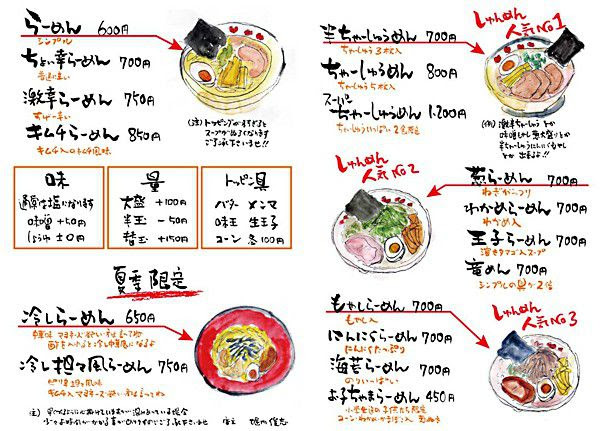 らーめん 600円
シンプル
ちょい辛らーめん 700円
普通に辛い
激辛らーめん 750円
すげー辛い
キムチらーめん 850円
キムチ入りのキムチ風味
(注) トッピングが多すぎると
スープがぬるくなります
ご了承下さいませ!!
味
通常は塩になります
味噌 +50円
しょうゆ ±0円
量
大盛 +100円
半玉 -50円
替玉 +150円
トッピン具
バター メンマ
味玉 生玉子
コーン 各100円
夏季限定
冷しらーめん 650円
冷し担々風らーめん 750円
半ちゃーしゅうめん 700円
ちゃーしゅう3枚入
ちゃーしゅうめん 800円
ちゃーしゅう5枚入
スーパー
ちゃーしゅうめん 1,200円
ちゃーしゅういっぱい
しゅんめん
人気No1
(例) 激辛ちゃーしゅう とか
出来るよ!!
しゅんめん
人気No2
葱らーめん 700円
ねぎがっつり
わかめらーめん 700円
わかめ入
玉子らーめん 700円
竜めん 700円
シンプルの具が2倍
もやしらーめん 700円
もやし入
にんにくらーめん 700円
にんにくたっぷり
海苔らーめん 700円
のりいっぱい
お子ちゃまらーめん 450円
しゅんめん
人気No3